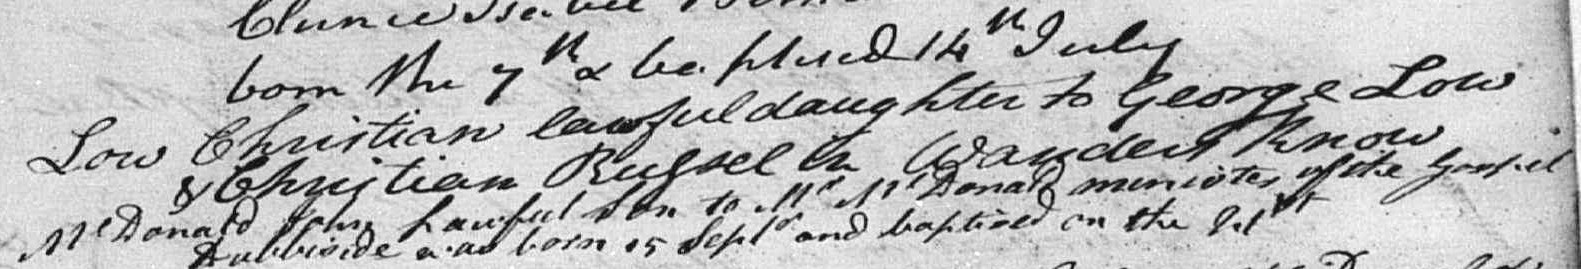 born the 7th & baptised 14th July
Low Christian lawful daughter to George Low
& Christian Rufsel in Wanders Know
McDonald John Lawful son to Mr McDonald minister of the Gospel
Dubbiside was born 15 Septr and baptised on the